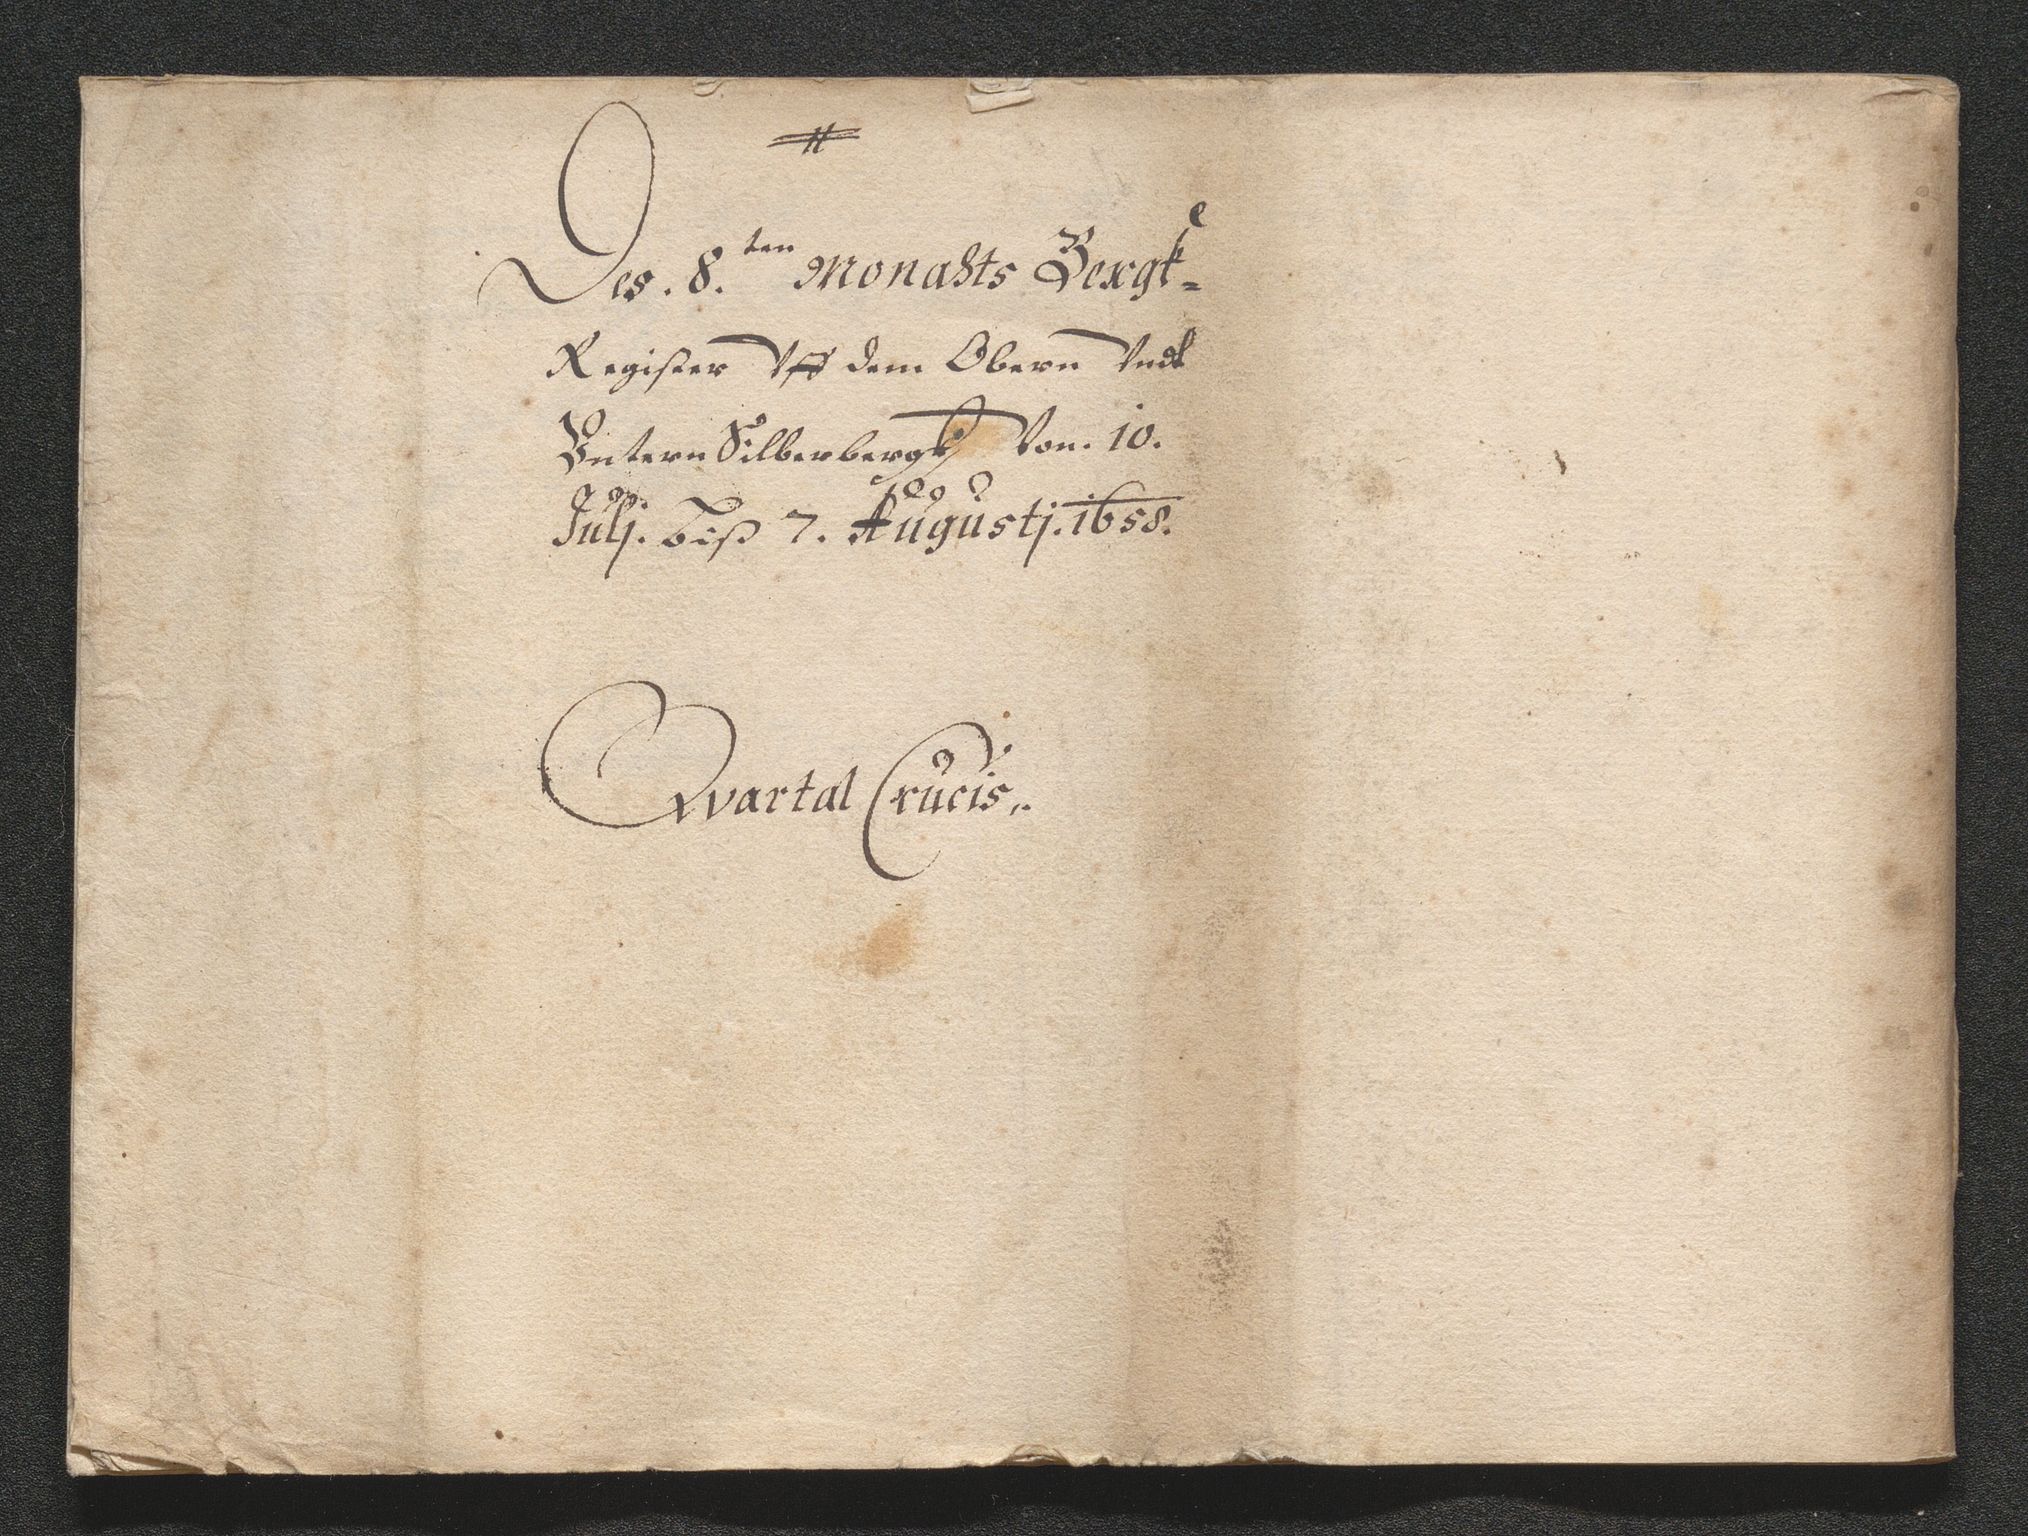 11
Des. 8.ten Monahts Bergk=
Register Vff dem Obern Vndt
Vntern Silberbergk Von. 10.
Julj. biß 7. Augustj. 1658.
Qvartal Crucis.